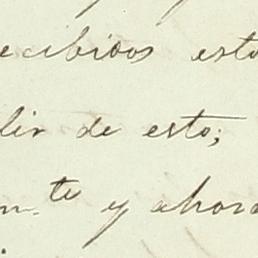 ecibidos esto
lir de esto;
m.te y ahora